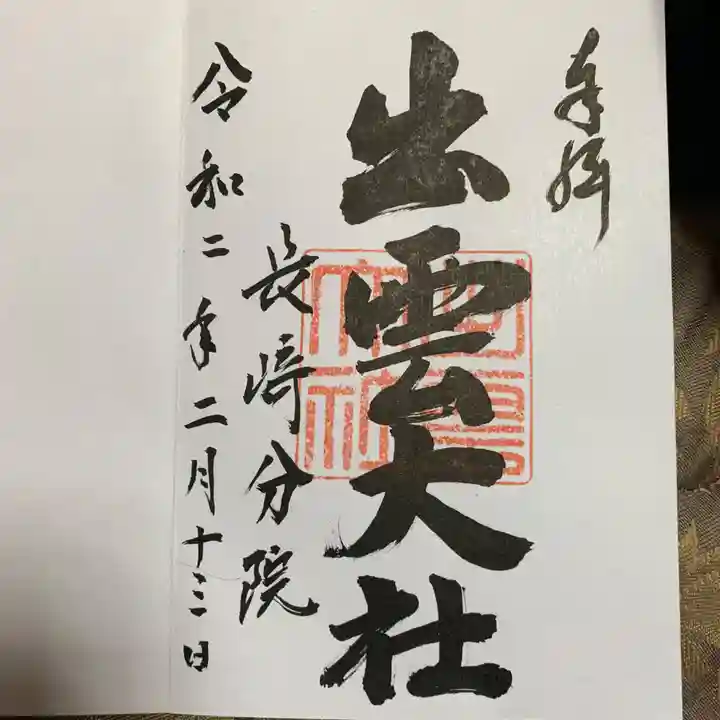 奉拝
出雲大社
長崎分院
令和二年二月十三日